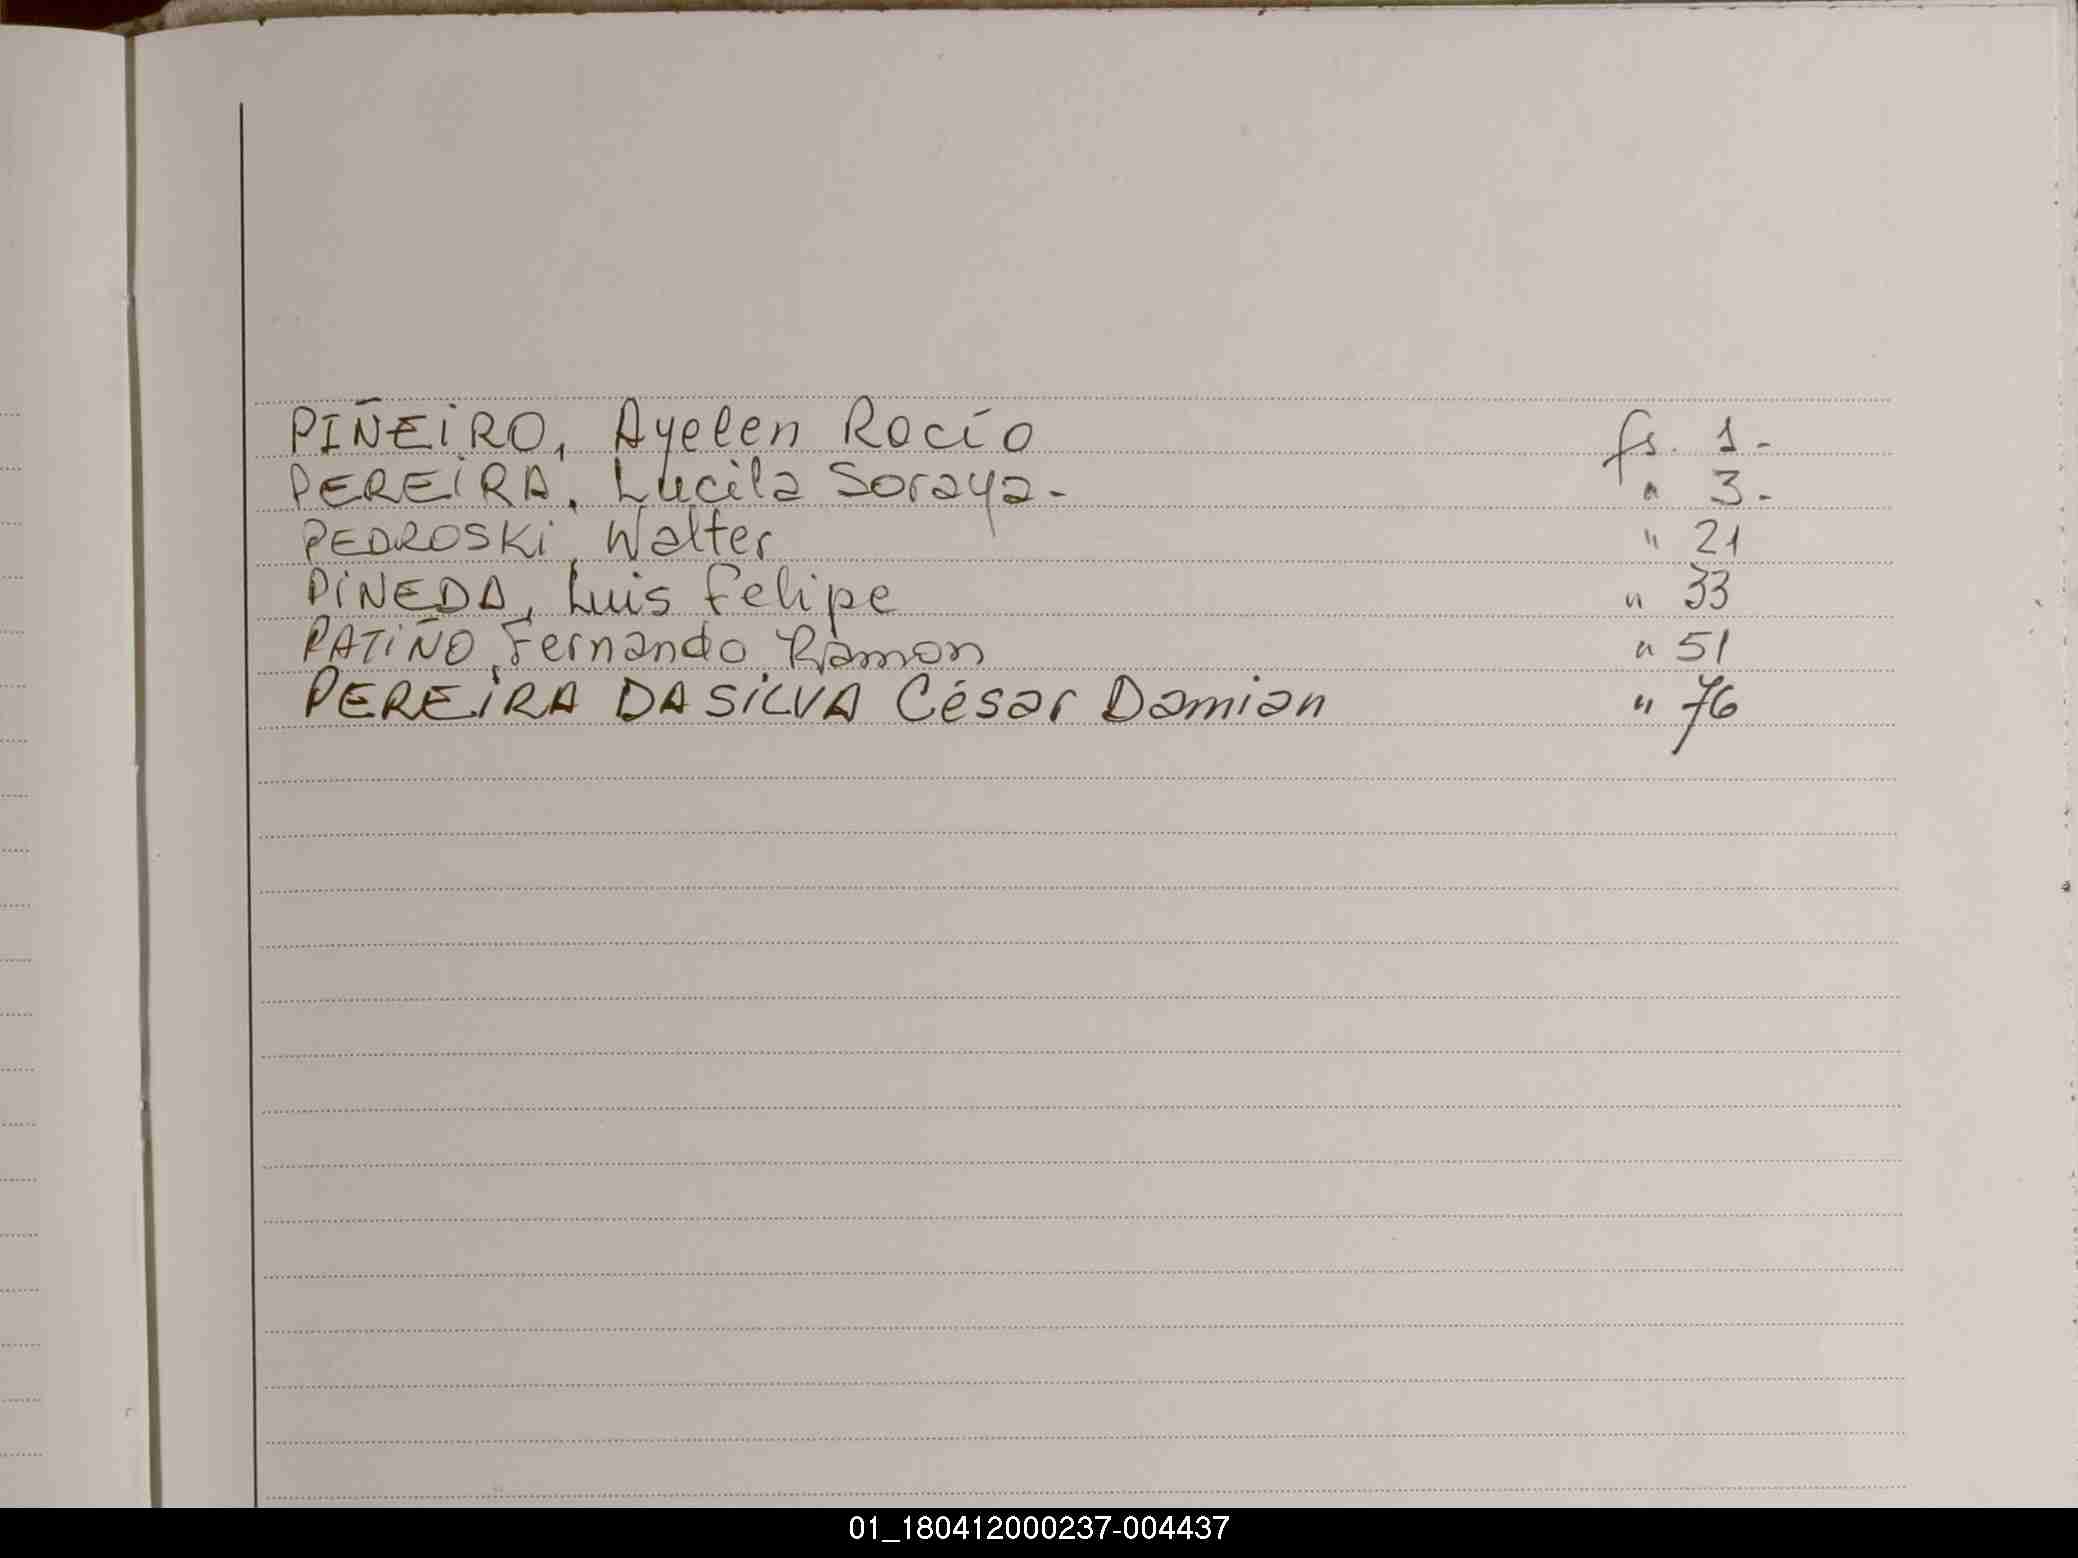 PIÑEIRO, Ayelen Rocío fs. 1-
PEREIRA, Lucila Soraya- " 3-
PEDROSKI, Walter " 21
PINEDA, Luis Felipe " 33
PATIÑO, Fernando Ramon " 51
PEREIRA DA SILVA César Damian " 76
01_180412000237-004437